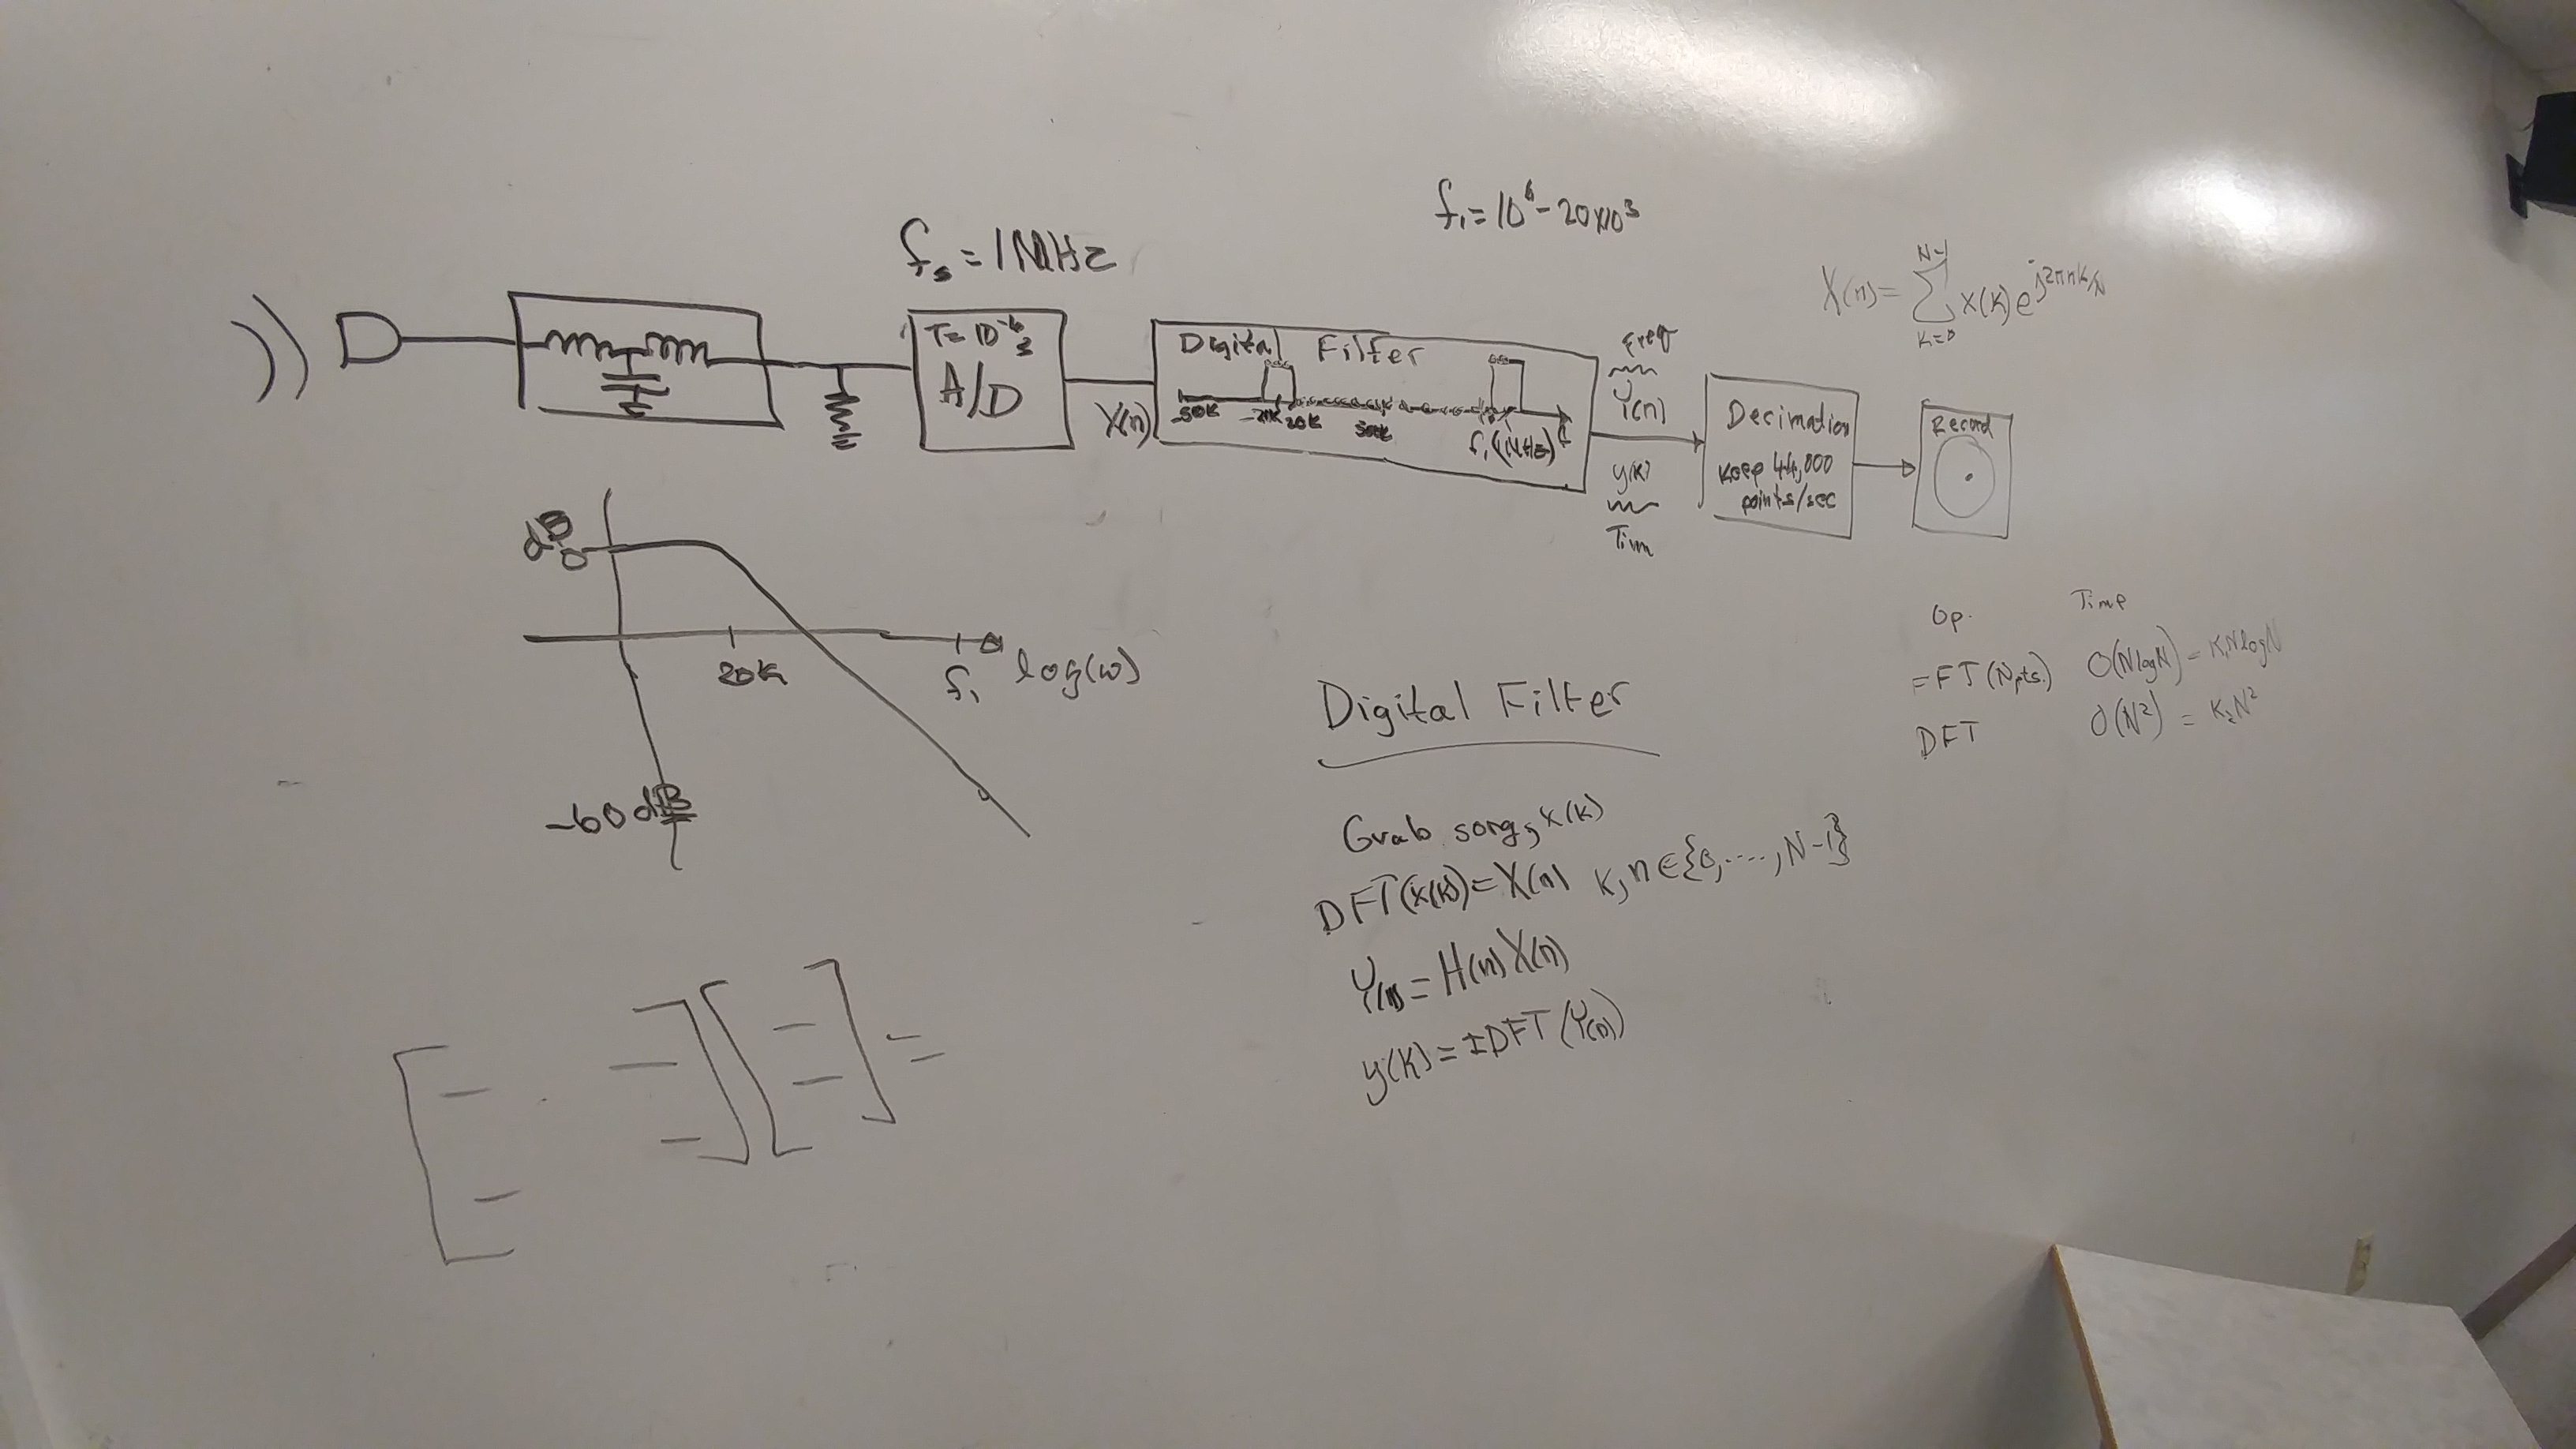 f₁=10⁶-20x10³
fₛ=1MHz
X(n)=∑x(k)e^j2πnk/N
N-1
k=0
T=10⁻⁶s
A/D
X(n)
Digital Filter
-20K 20K 500K
f₁(1MHz) f
Freq
Y(n)
y(k)
Tim
Decimation
Keep 44,000
points/sec
Record
dB
0
20K
f₁
log(w)
-60dB
Op. Time
FFT(Npts.) O(NlogN)=K₁NlogN
DFT O(N²)=K₂N²
Digital Filter
Grab song, x(k)
DFT(x(k))=X(n) k,n∈{0,....,N-1}
Y(n)=H(n)X(n)
y(k)=IDFT(Y(n))
[ ] [ ] =